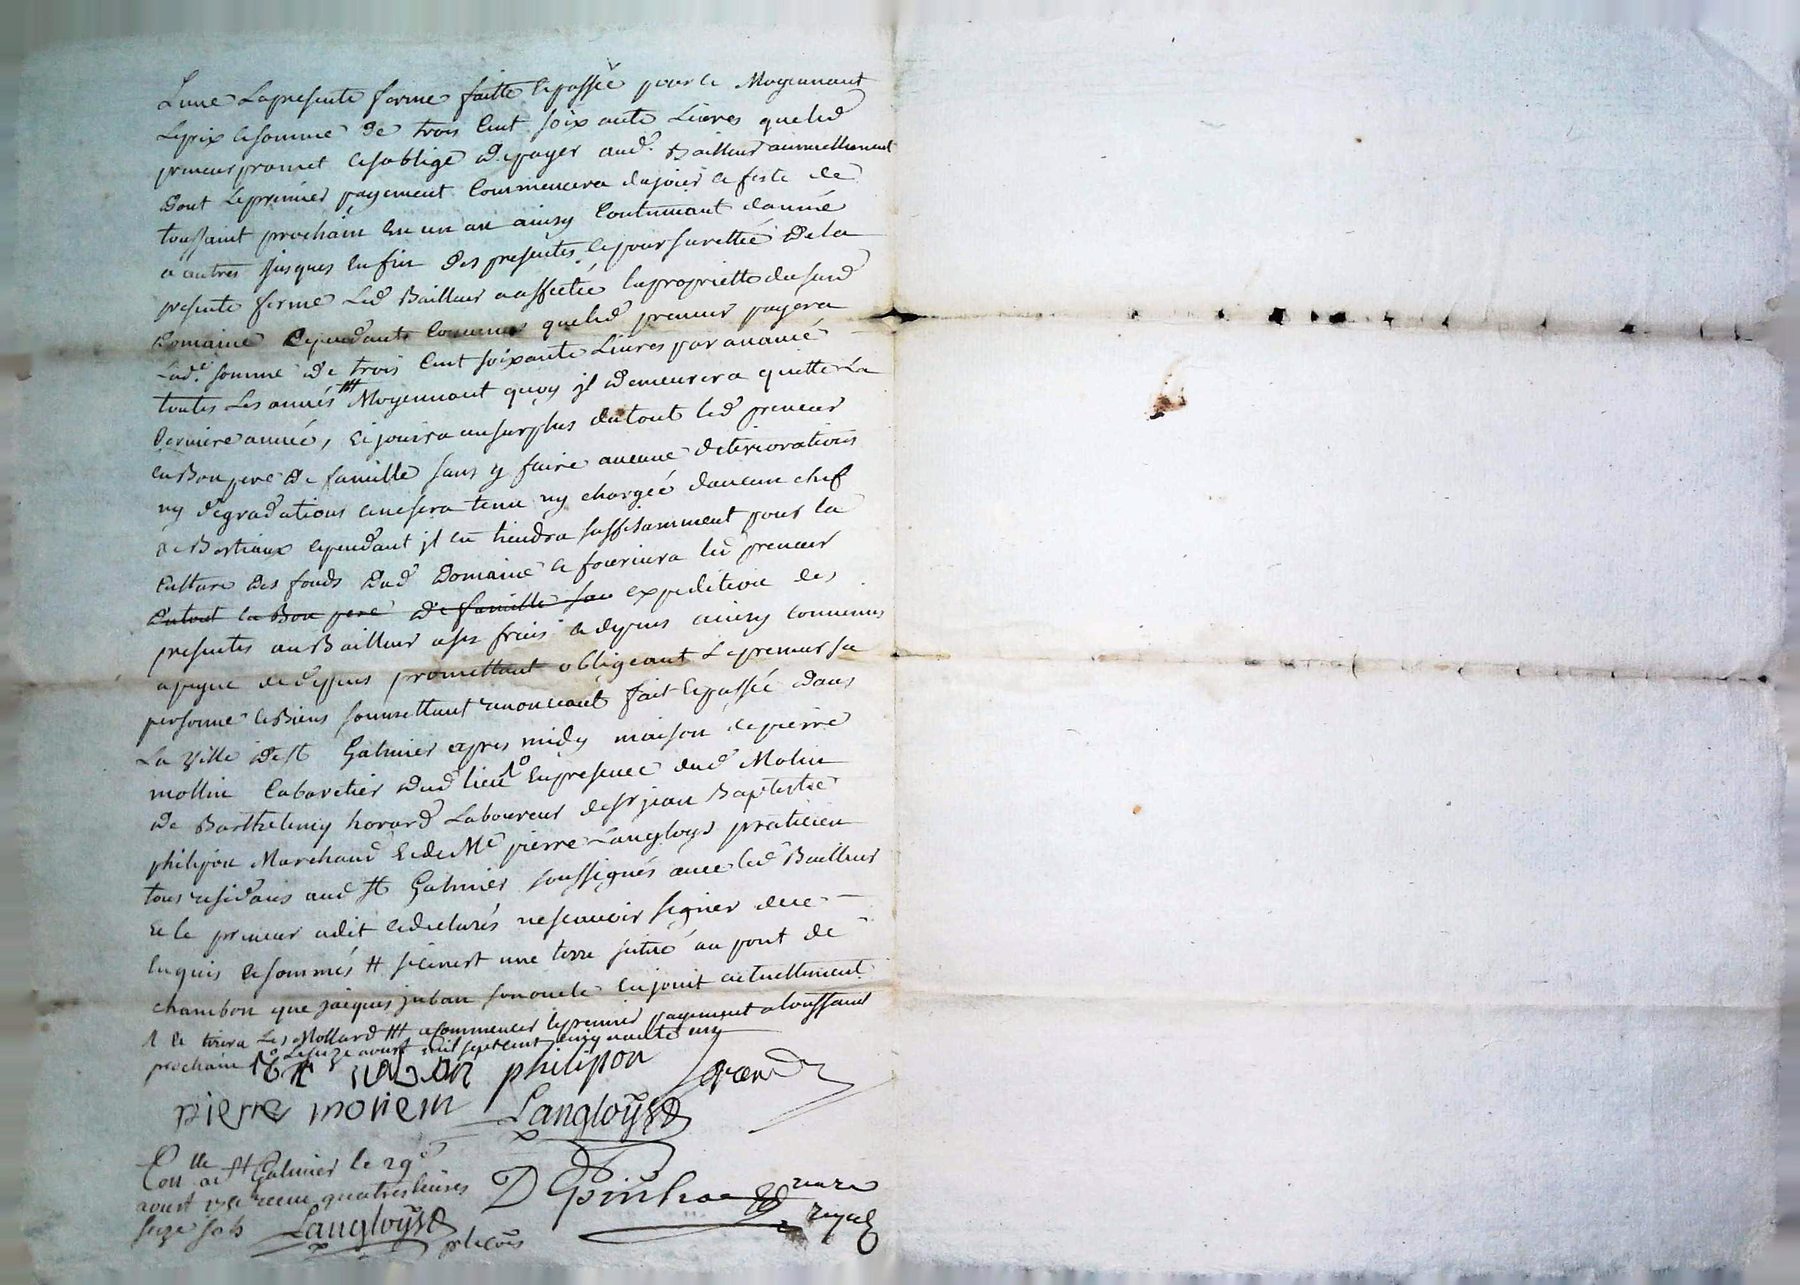 Lune La presente ferme faitte et passée pour et Moyennant
Le prix et somme de trois Cent soixante Livres que led
preneur promet et s'oblige de payer aud. Bailleur annuellement
Dont Le premier payement Commencera du jour et feste de
toussaint prochain En un an ainsy Continuant d'année
a autres jusques en fin des presentes, et pour suretteé de la
presente ferme Led Bailleur a affectée la proprietté du sus d
Domaine Cependant Convenu que led preneur payera
Lad. somme de trois Cent soixante Livres par année
toutes Les années # Moyennant quoy il demeurera quitte La
derniere année, et jouira au surplus du tout led preneur
en Bon pere De famille sans y faire aucune deteriorations
ny degradations et ne sera tenu ny chargéé d'aucun chef
de Bestiaux cependant il en tiendra suffisamment pour la
Culture des fonds dud Domaine et fournira led preneur
Du tout en Bon pere De famille sa expedition des
presentes au Bailleur a ses frais et depens ainsy convenus
a peyne de depens promettant obligeant Le preneur sa
personne et Biens soumettant renonceant fait et passée dans
La ville de St Galmier apres midy maison de pierre
mollin Cabaretier dud lieu En presence dud Molin
De Barthelemy horard Laboureur de sr jean Baptiste
philipon Marchand Et de Me pierre Langloys praticien
tous residans aud St Galmier soussignés avec led Bailleur
Et le preneur a dit et declarés ne scavoir signer de ce
Enquis et sommés # si ce n'est une terre scitué au pont de
chambon que jacques juban en jouit actuellement
Les Mollard # a Commencer le premier payement a toussaint
prochain Le seize aoust mil sept cent cinquante
philipon
pierre moriem Langloys
Con a St Galmier le 29e
aoust receu quatres livres
seize sols Langloys
D Gpinhac
royal